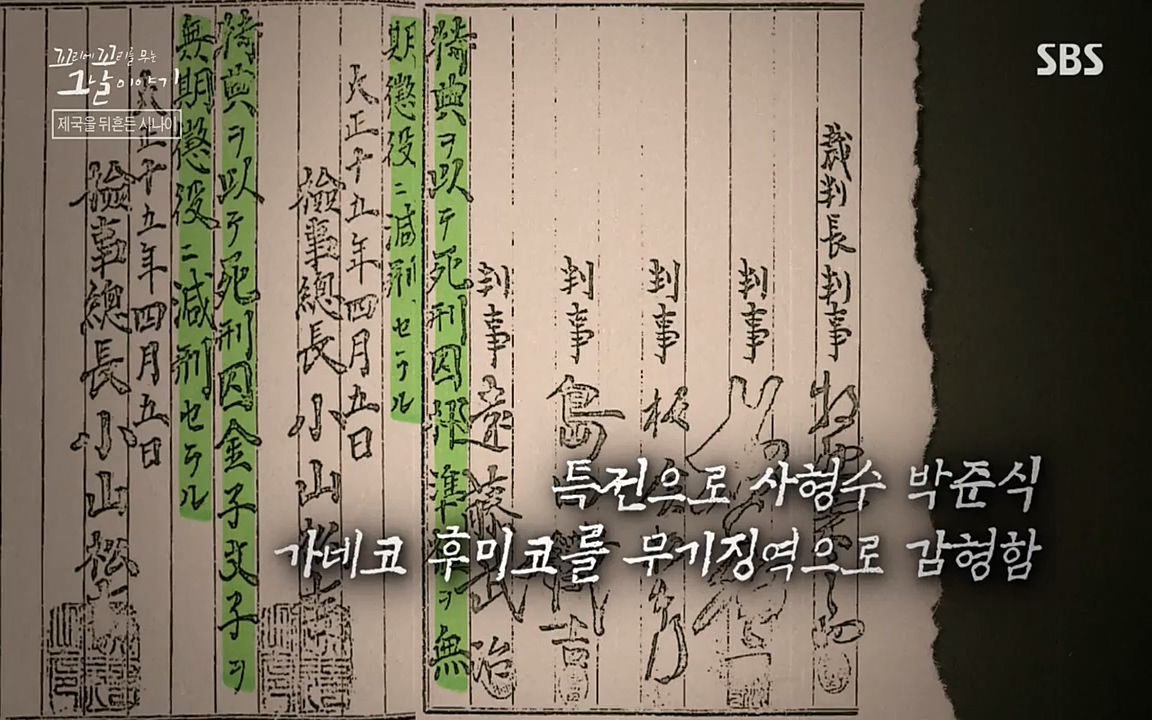 꼬리에 꼬리를 무는
그날 이야기
제국을 뒤흔든 사나이
SBS
裁判長判事
判事
判事
判事 島
判事 遠藤武治
特典ヲ以テ死刑囚朴準植ヲ無
期懲役ニ減刑セラル
大正十五年四月五日
檢事總長小山松
特典ヲ以テ死刑囚金子文子ヲ
無期懲役ニ減刑セラル
大正十五年四月五日
檢事總長小山松
특전으로 사형수 박준식
가네코 후미코를 무기징역으로 감형함